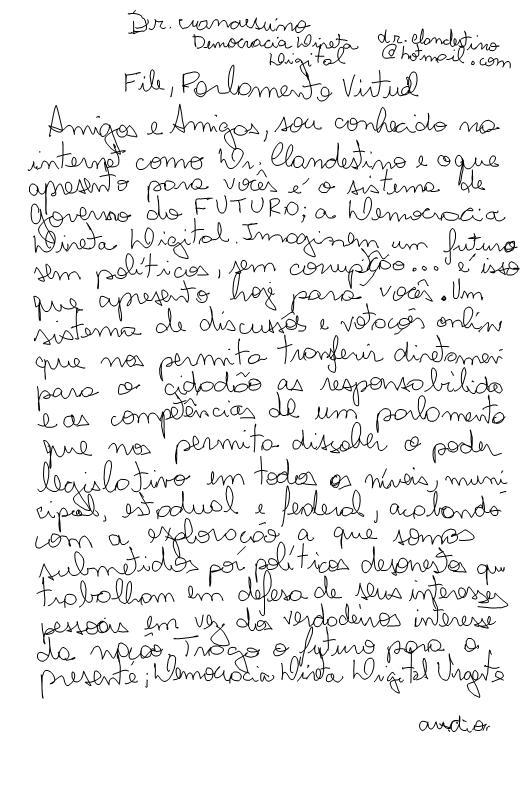 Dr. Clandestino
Democracia Direta dr.clandestino
Digital @hotmail.com
File, Parlamento Virtual
Amigos e Amigas, sou conhecido na
internet como Dr. Clandestino e o que
apresento para vocês é o sistema de
governo do FUTURO; a Democracia
Direta Digital. Imaginem um futuro
sem políticos, sem corrupção... é isso
que apresento hoje para vocês. Um
sistema de discussões e votações onlin
que nos permita transferir diretamen
para o cidadão as responsabilida
e as competências de um parlamento
que nos permita dissolver o poder
legislativo em todos os níveis, muni
cipal, estadual e federal, acabando
com a exploração a que somos
submetidos por políticos desonestos que
trabalham em defesa de seus interesses
pessoais em vez dos verdadeiros interesse
da nação. Trago o futuro para o
presente; Democracia Direta Digital Urgente
audio..